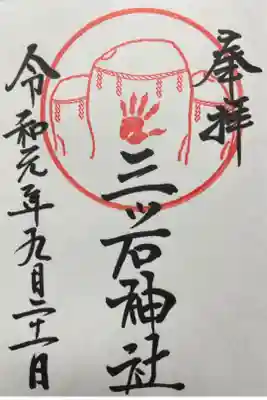 奉拝
三ツ石神社
令和元年九月二十一日